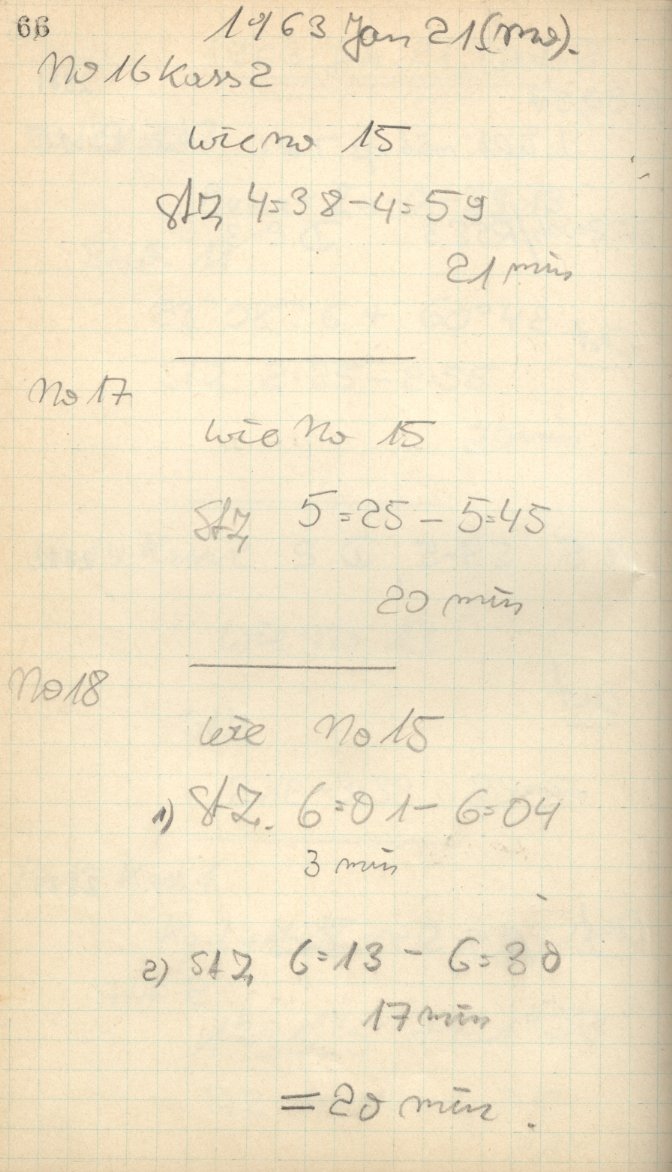 66
1963 Jan 21 (mo).
No 16 Kass 2
wie no 15
StZ 4=38-4=59
21 min
No 17
wie No 15
StZ 5=25-5=45
20 min
No 18
wie No 15
1) StZ. 6=01-6=04
3 min
2) StZ 6=13-6=30
17 min
=20 min.